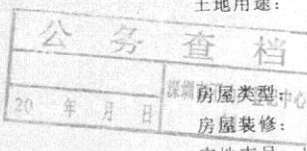 土地用途：
公务查档
深圳 中心
20 年 月 日
房屋类型：
房屋装修：